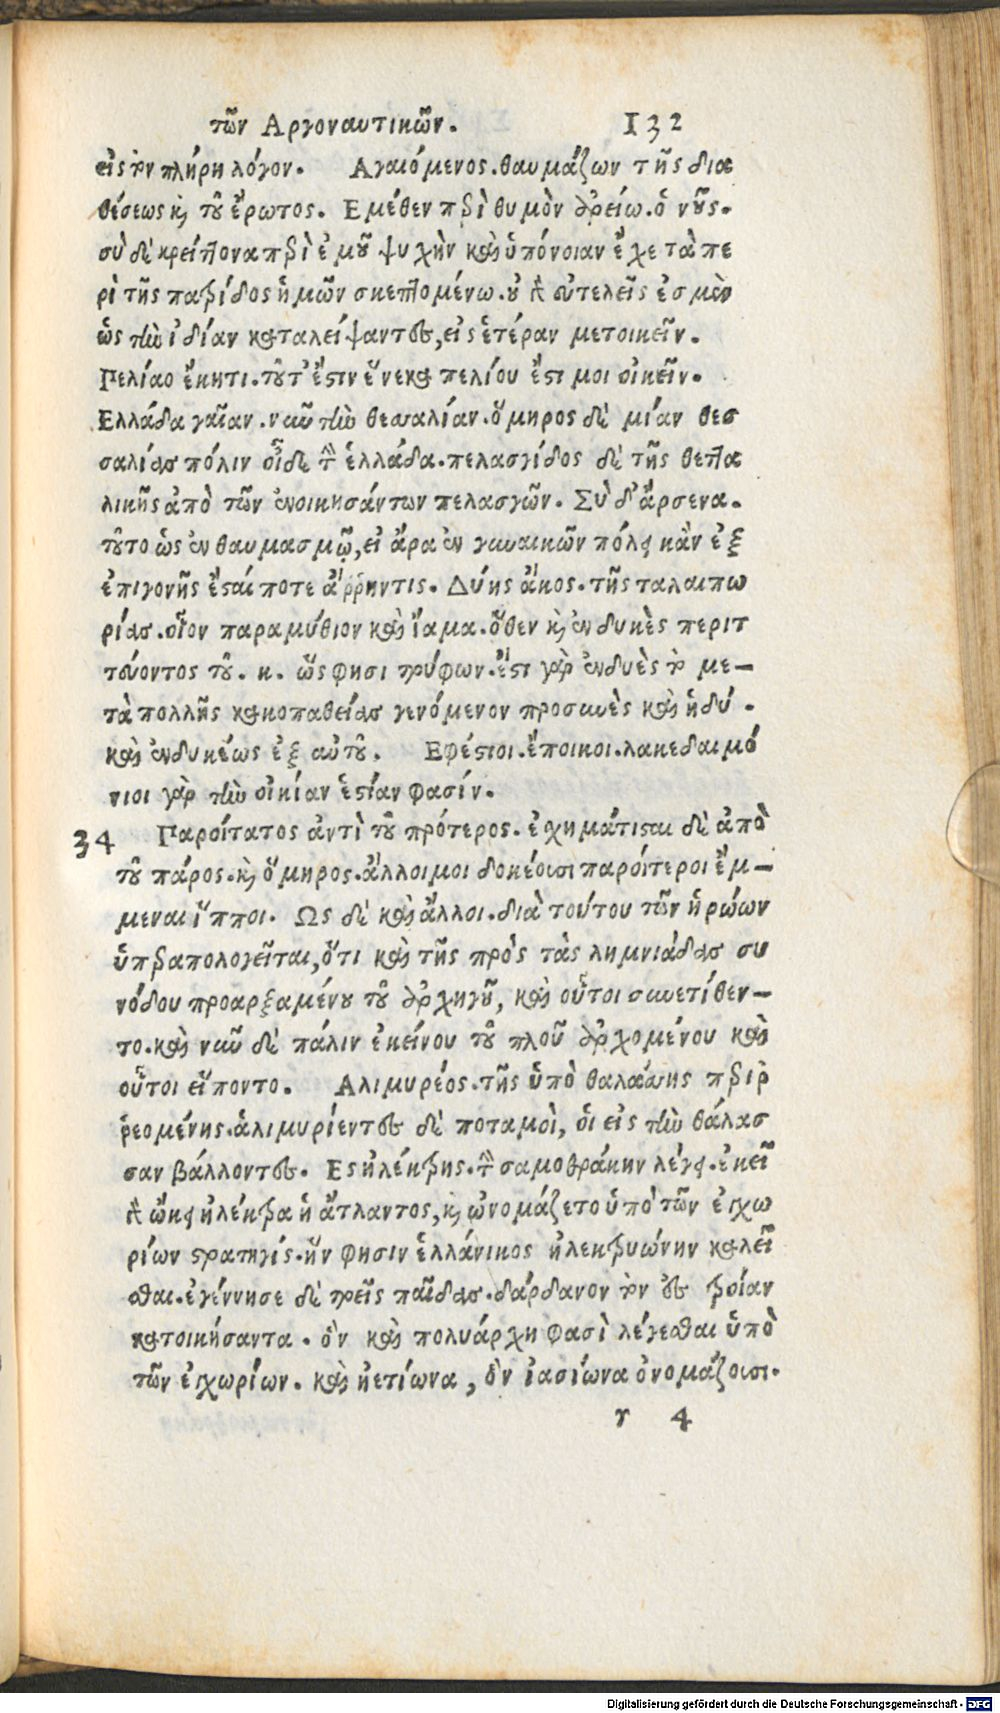 τῶν Αργοναυτικῶν. 132
εἰς τὸν πλήρη λόγον. Αγαιόμενος. θαυμάζων τῆς δια
θέσεως καὶ τοῦ ἔρωτος. Εμέθεν περὶ θυμὸν ἀρείω. ὁ νοῦς.
σὺ δὲ κρείττονα περὶ ἐμοῦ ψυχὴν καὶ ὑπόνοιαν ἔχε τὰ πε
ρὶ τῆς πατρίδος ἡμῶν σκεπτομένω. οὐ γὰρ εὐτελεῖς ἐσμὲν
ὡς τὴν ἰδίαν καταλείψαντες, εἰς ἑτέραν μετοικεῖν.
Πελίαο ἕκητι. τοῦτ' ἔστιν ἕνεκα πελίου ἔστι μοι οἰκεῖν.
Ελλάδα γαῖαν. νῦν τὴν θεσσαλίαν. ὅμηρος δὲ μίαν θεσ
σαλίας πόλιν οἶδε τὴν ἑλλάδα. πελασγίδος δὲ τῆς θεττα
λικῆς ἀπὸ τῶν ἐνοικησάντων πελασγῶν. Σὺ δ' ἄρσενα.
τοῦτο ὡς ἐν θαυμασμῷ, εἰ ἄρα ἐν γυναικῶν πόλει κἂν ἐξ
ἐπιγονῆς ἔσαί ποτε ἄῤῥηντις. Δύης ἄκος. τῆς ταλαιπω
ρίας. οἷον παραμύθιον καὶ ἴαμα. ὅθεν καὶ ἐνδυκὲς περιτ
τεύοντος τοῦ. κ. ὥς φησι τρύφων. ἔστι γὰρ ἐνδυὲς τὸ με-
τὰ πολλῆς κακοπαθείας γενόμενον προσηνὲς καὶ ἡδύ.
καὶ ἐνδυκέως ἐξ αὐτοῦ. Εφέστιοι. ἔποικοι. λακεδαιμό
νιοι γὰρ τὴν οἰκίαν ἑστίαν φασίν.
34 Παροίτατος ἀντὶ τοῦ πρότερος. ἐσχημάτισται δὲ ἀπὸ
τοῦ πάρος. καὶ ὅμηρος. ἄλλοι μοι δοκέουσι παροίτεροι ἔμ-
μεναι ἵπποι. Ως δὲ καὶ ἄλλοι. διὰ τούτου τῶν ἡρώων
ὑπεραπολογεῖται, ὅτι καὶ τῆς πρὸς τὰς λημνιάδας συ
νόδου προαρξαμένου τοῦ ἀρχηγοῦ, καὶ οὗτοι συνετίθεν-
το. καὶ νῦν δὲ πάλιν ἐκείνου τοῦ πλοῦ ἀρχομένου καὶ
οὗτοι εἵποντο. Αλιμυρέος. τῆς ὑπὸ θαλάσσης περιῤ
ῥεομένης. ἁλιμυρίεντες δὲ ποταμοὶ, ὁι εἰς τὴν θάλασ
σαν βάλλοντες. Ες ἠλέκτρης. τὴν σαμοθράκην λέγει. ἐκεῖ
γὰρ ᾤκει ἠλέκτρα ἡ ἄτλαντος, καὶ ὠνομάζετο ὑπὸ τῶν ἐγχω
ρίων στρατηγίς. ἥν φησιν ἑλλάνικος ἠλεκτρυώνην καλεῖ
σθαι. ἐγέννησε δὲ τρεῖς παῖδας. δάρδανον τὸν εἰς τροίαν
κατοικήσαντα. ὃν καὶ πολυάρχη φασὶ λέγεσθαι ὑπὸ
τῶν ἐγχωρίων. καὶ ἠετίωνα, ὃν ἰασίωνα ὀνομάζουσι.
r 4
Digitalisierung gefördert durch die Deutsche Forschungsgemeinschaft - DFG